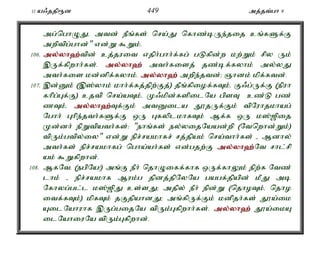 11 யஃததிரூன 449 அத்தவ்பா 9
அப்பொழுது, அவன் நீங்கள் செய்து கொண்டிருந்ததை உங்களுக்கு
அறிவிப்பான்" என்று கூறும்.
106. அல்லாஹ்வின் உத்தரவை எதிர்பார்க்கப் படுகின்ற மற்றும் சில ரும்
இருக்கிறார்கள். அல்லாஹ் அவர்களைத் தண்டிக்கலாம் அல்லது
அவர்களை மன்னிக்கலாம். அல்லாஹ் அறிந்தவன்; ஞானம் மிக்கவன்.
107. இன்னும் (இஸ்லாம் மார்க்கத்திற்குத்) தீங்கிழைக்கவும், குஃப்ருக்கு (நிரா
கரிப்புக்கு) உதவி செய்யவும், முஃமின்களிடையே பிளவு உண்டு பண்
ணவும், அல்லாஹ்வுக்கும் அவனுடைய தூதருக்கும் விரோதமாயப்
போர் புரிந்தவர்களுக்கு ஒரு புகலிடமாகவும் ஆக்க ஒரு மஸ்ஜிதை
முன்னர் நிறுவியவர்கள்: "நாங்கள் நல்லதையேயன்றி (வேறொன்றும்)
விரும்பவில்லை" என்று நிச்சயமாகச் சத்தியம் செய்வார்கள் . ஆனால்
அவர்கள் நிச்சயமாகப் பொய்யர்கள் என்பதற்கு அல்லாஹ்வே சாட்சி
யம் கூறுகிறான்.
108. ஆகவே (நபியே!) அங்கு நீர் தொழுகைக்காக ஒருக்காலும் நிற்க வேண்
டாம் . நிச்சயமாக ஆரம்ப தினத்திலேயே பயபக்தியின் மீது அடி
கோலப்பட்ட மஸ்ஜிது உள்ளது; அதில் நீர் நின்று (தொழவும், தொழ
வைக்கவும்) மிகவும் தகுதியானது; அங்கிருக்கும் மனிதர்கள் தூய்மை
யுடையோராக இருப்பதையே விரும்புகிறார்கள். அல்லாஹ் தூய்மையு
டையோரையே விரும்புகிறான்.